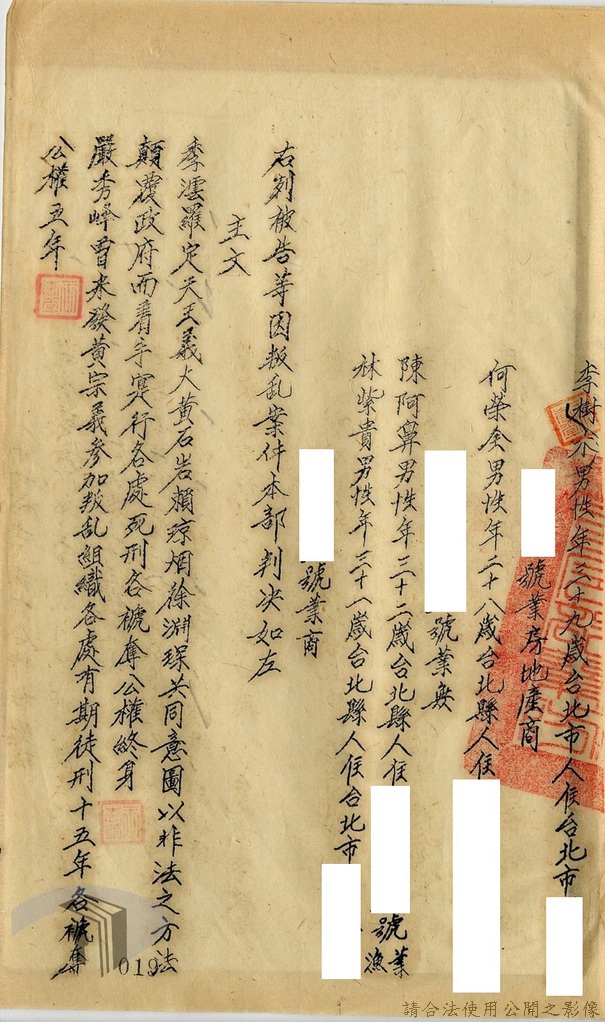 李樹木男性年三十九歲台北市人住台北市
號業房地產商
何榮全男性年二十八歲台北縣人住
號業無
陳阿鼻男性年三十二歲台北縣人住
號業漁
林紫貴男性年三十一歲台北縣人住台北市
號業商
右列被告等因叛乱案件本部判决如左
主文
季澐羅定天王義火黃石岩賴瓊烟徐淵琛共同意圖以非法之方法
顛覆政府而着手实行各處死刑各褫奪公權終身
嚴秀峰曾来發黃宗義參加叛乱組織各處有期徒刑十五年各褫奪
公權五年
019
請合法使用公開之影像